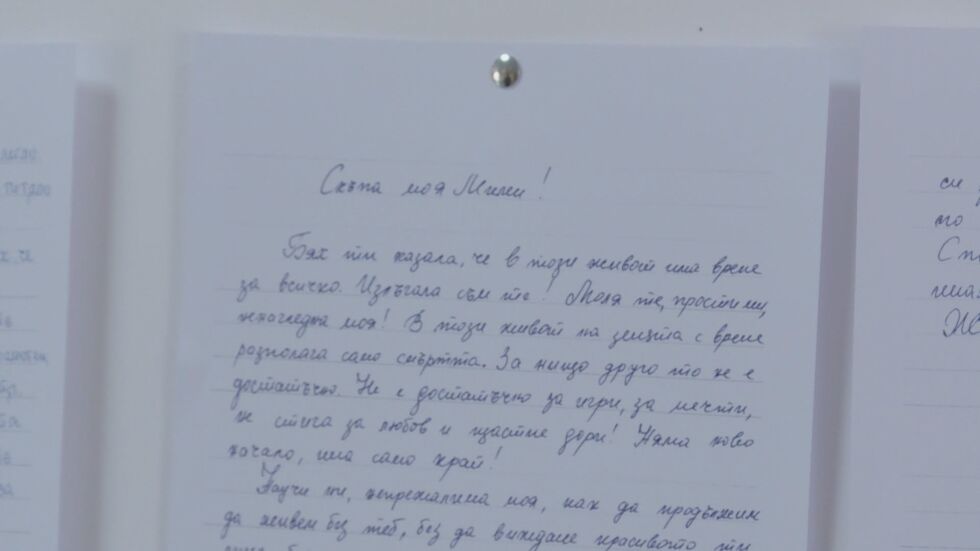 Скъпа моя Мили!
Бях ти казала, че в този живот има време
за всичко. Излъгала съм те! Моля те, прости ми,
ненагледна моя! В този живот на земята с време
разполага само смъртта. За нищо друго то не е
достатъчно. Не е достатъчно за игри, за мечти,
не стига за любов и щастие дори! Няма ново
начало, има само край!
Научи ни, непрежалима моя, как да продължим
да живем без теб, без да виждаме красивото ти
си
то